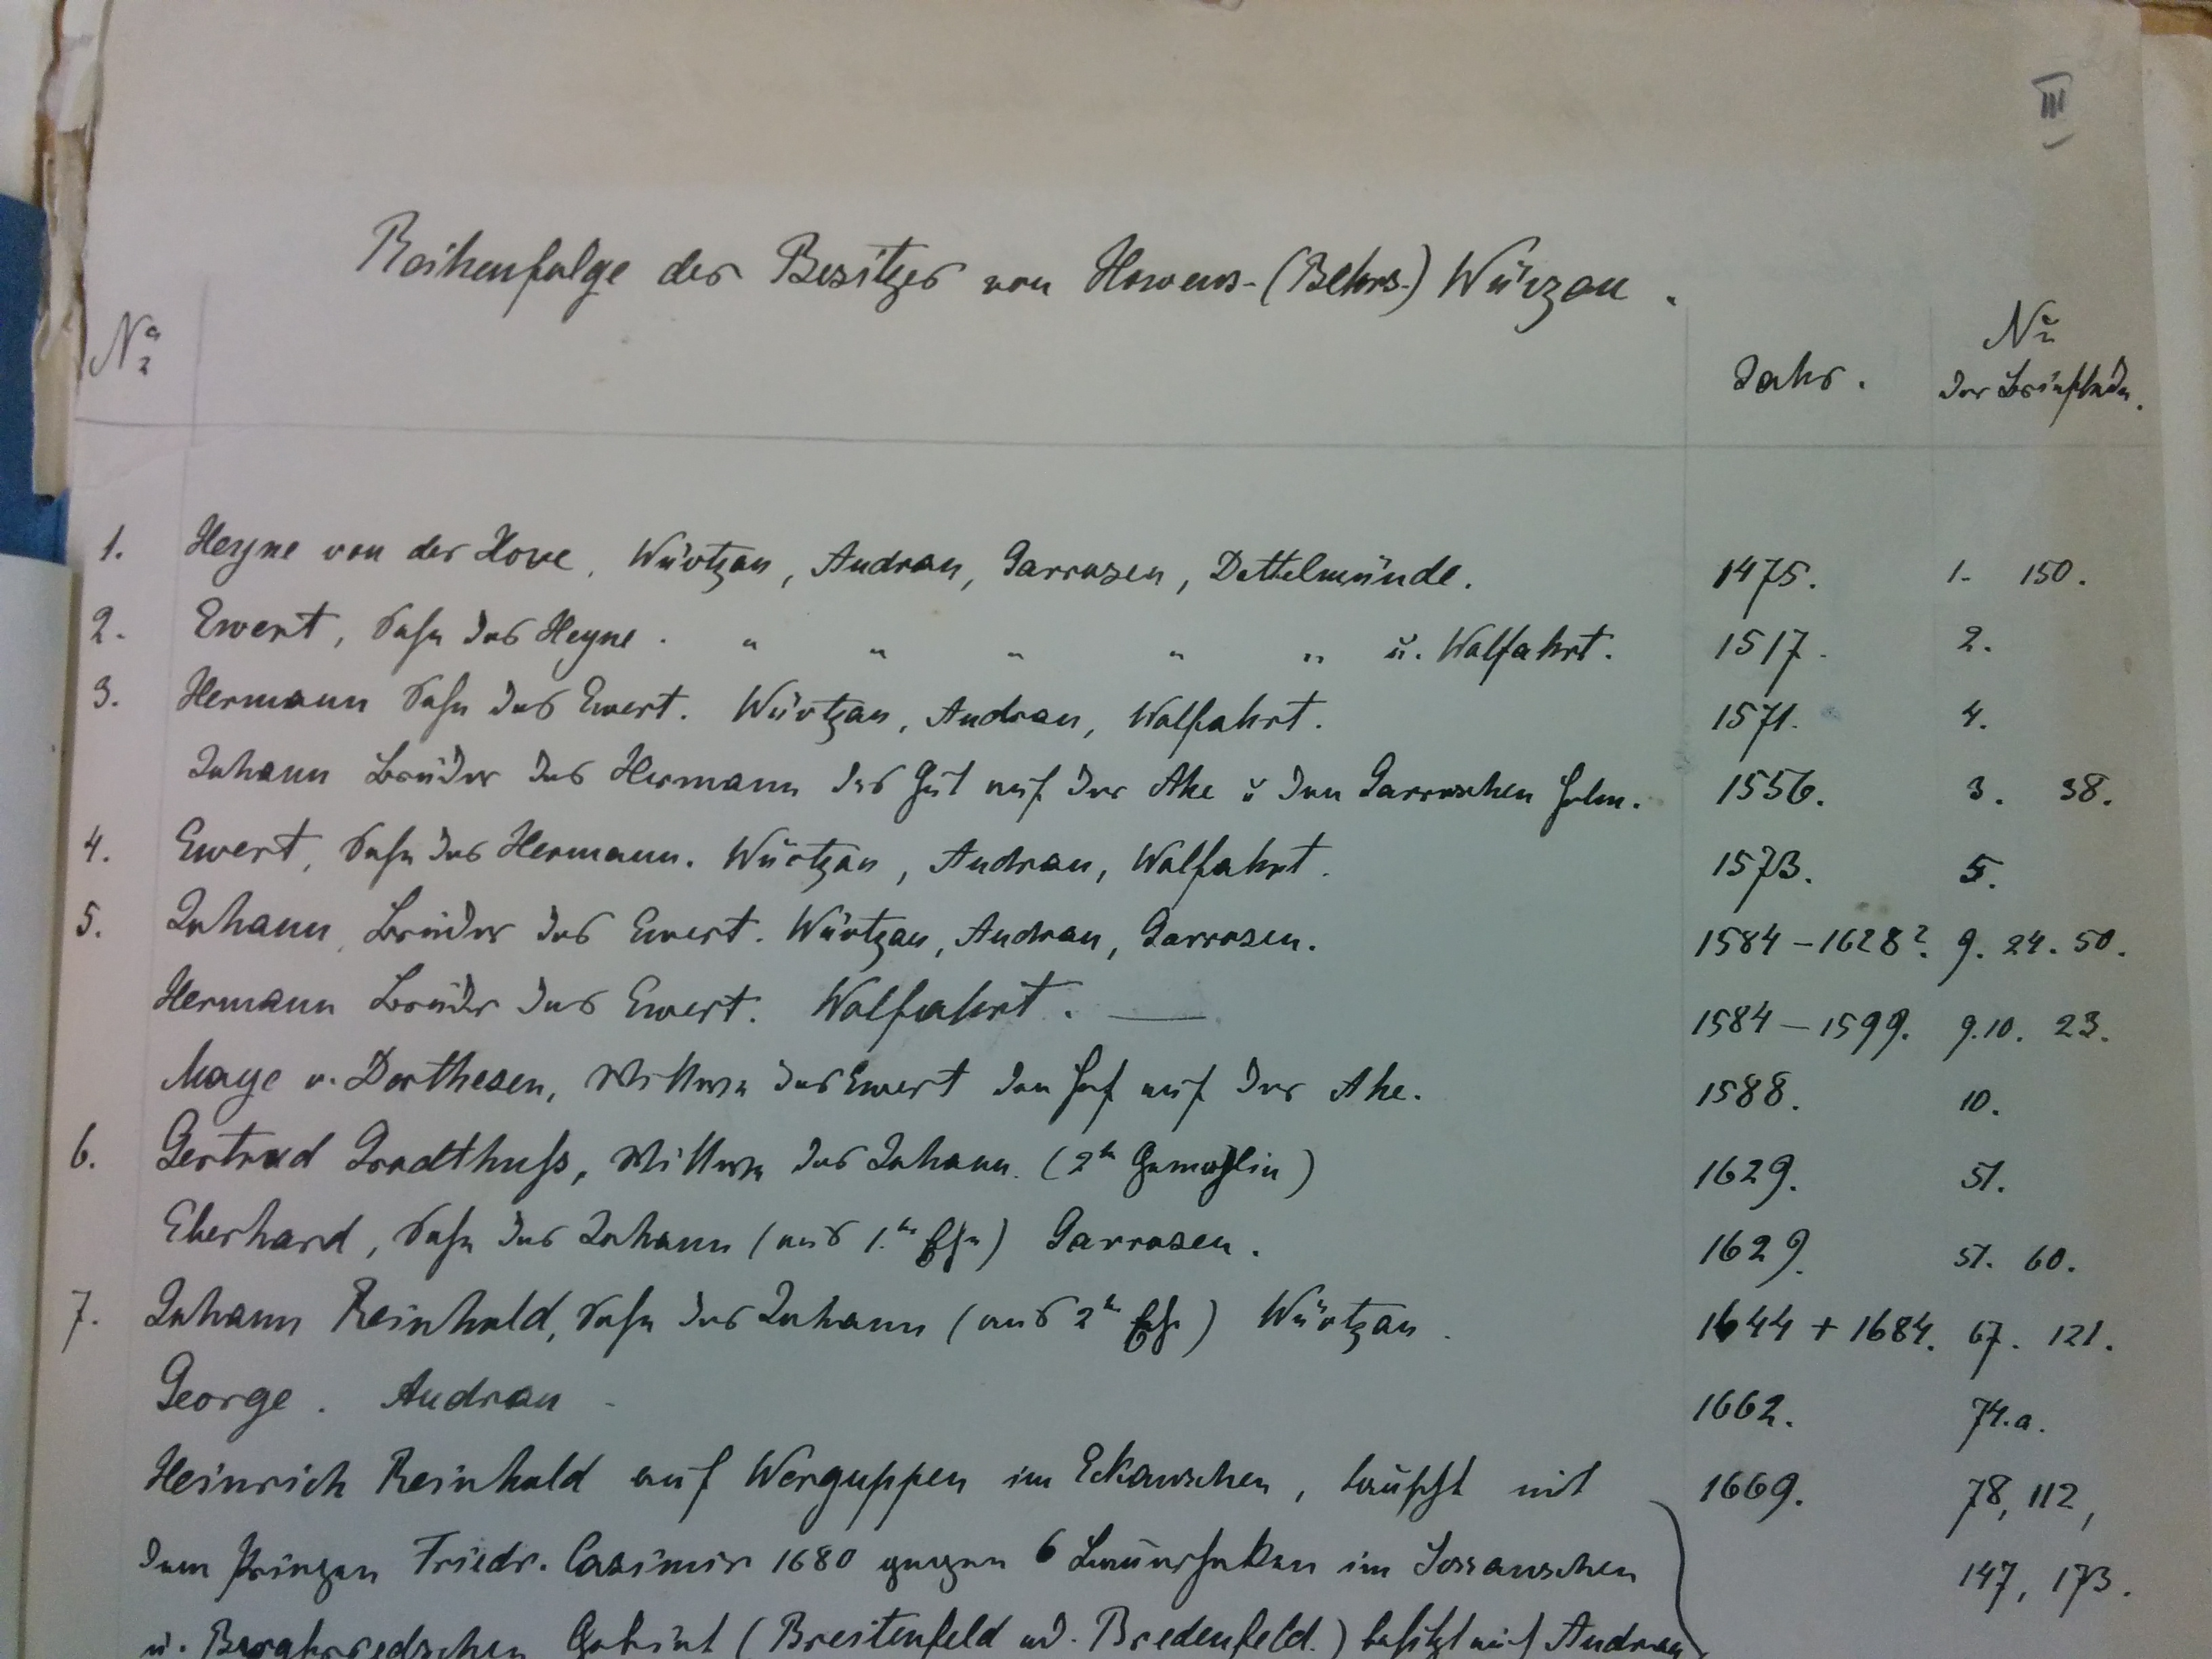 III
Reihenfolge der Besitzer von Howens-(Behrs-) Würzau.
No
Jahr.
No
der Brieflade.
1. Heyne von der Hove. Würtzau, Audrau, Garrosen, Dettelmünde. 1475. 1. 150.
2. Ewert, Sohn des Heyne. " " " " " u. Walfahrt. 1517. 2.
3. Hermann Sohn des Ewert. Würtzau, Audrau, Walfahrt. 1571. 4.
Johann Bruder des Hermann das Gut auf der Ahe u den Garroschen Holm. 1556. 3. 38.
4. Ewert, Sohn des Hermann. Würtzau, Audrau, Walfahrt. 1573. 5.
5. Johann, Bruder des Ewert. Würtzau, Audrau, Garrosen. 1584 - 1628?. 9. 24. 50.
Hermann Bruder des Ewert. Walfahrt. — 1584 - 1599. 9. 10. 23.
Maye v. Dorthesen, Wittwe des Ewert den Hof auf der Ahe. 1588. 10.
6. Gertrud Grodthuss, Wittwe des Johann. (2te Gemahlin) 1629. 51.
Eberhard, Sohn des Johann (aus 1.ter Ehe) Garrosen. 1629. 51. 60.
7. Johann Reinhold, Sohn des Johann (aus 2ter Ehe) Würtzau. 1644 + 1684. 67. 121.
George. Audrau 1662. 74.a.
Heinrich Reinhold auf Werguppen im Eckauschen, tauscht mit 1669. 78, 112,
dem Prinzen Friedr. Casimir 1680 gegen 6 Bauerhaken im 147, 173.
u. Gebiet (Breitenfeld od. Bredenfeld.) besitzt auch Audrau